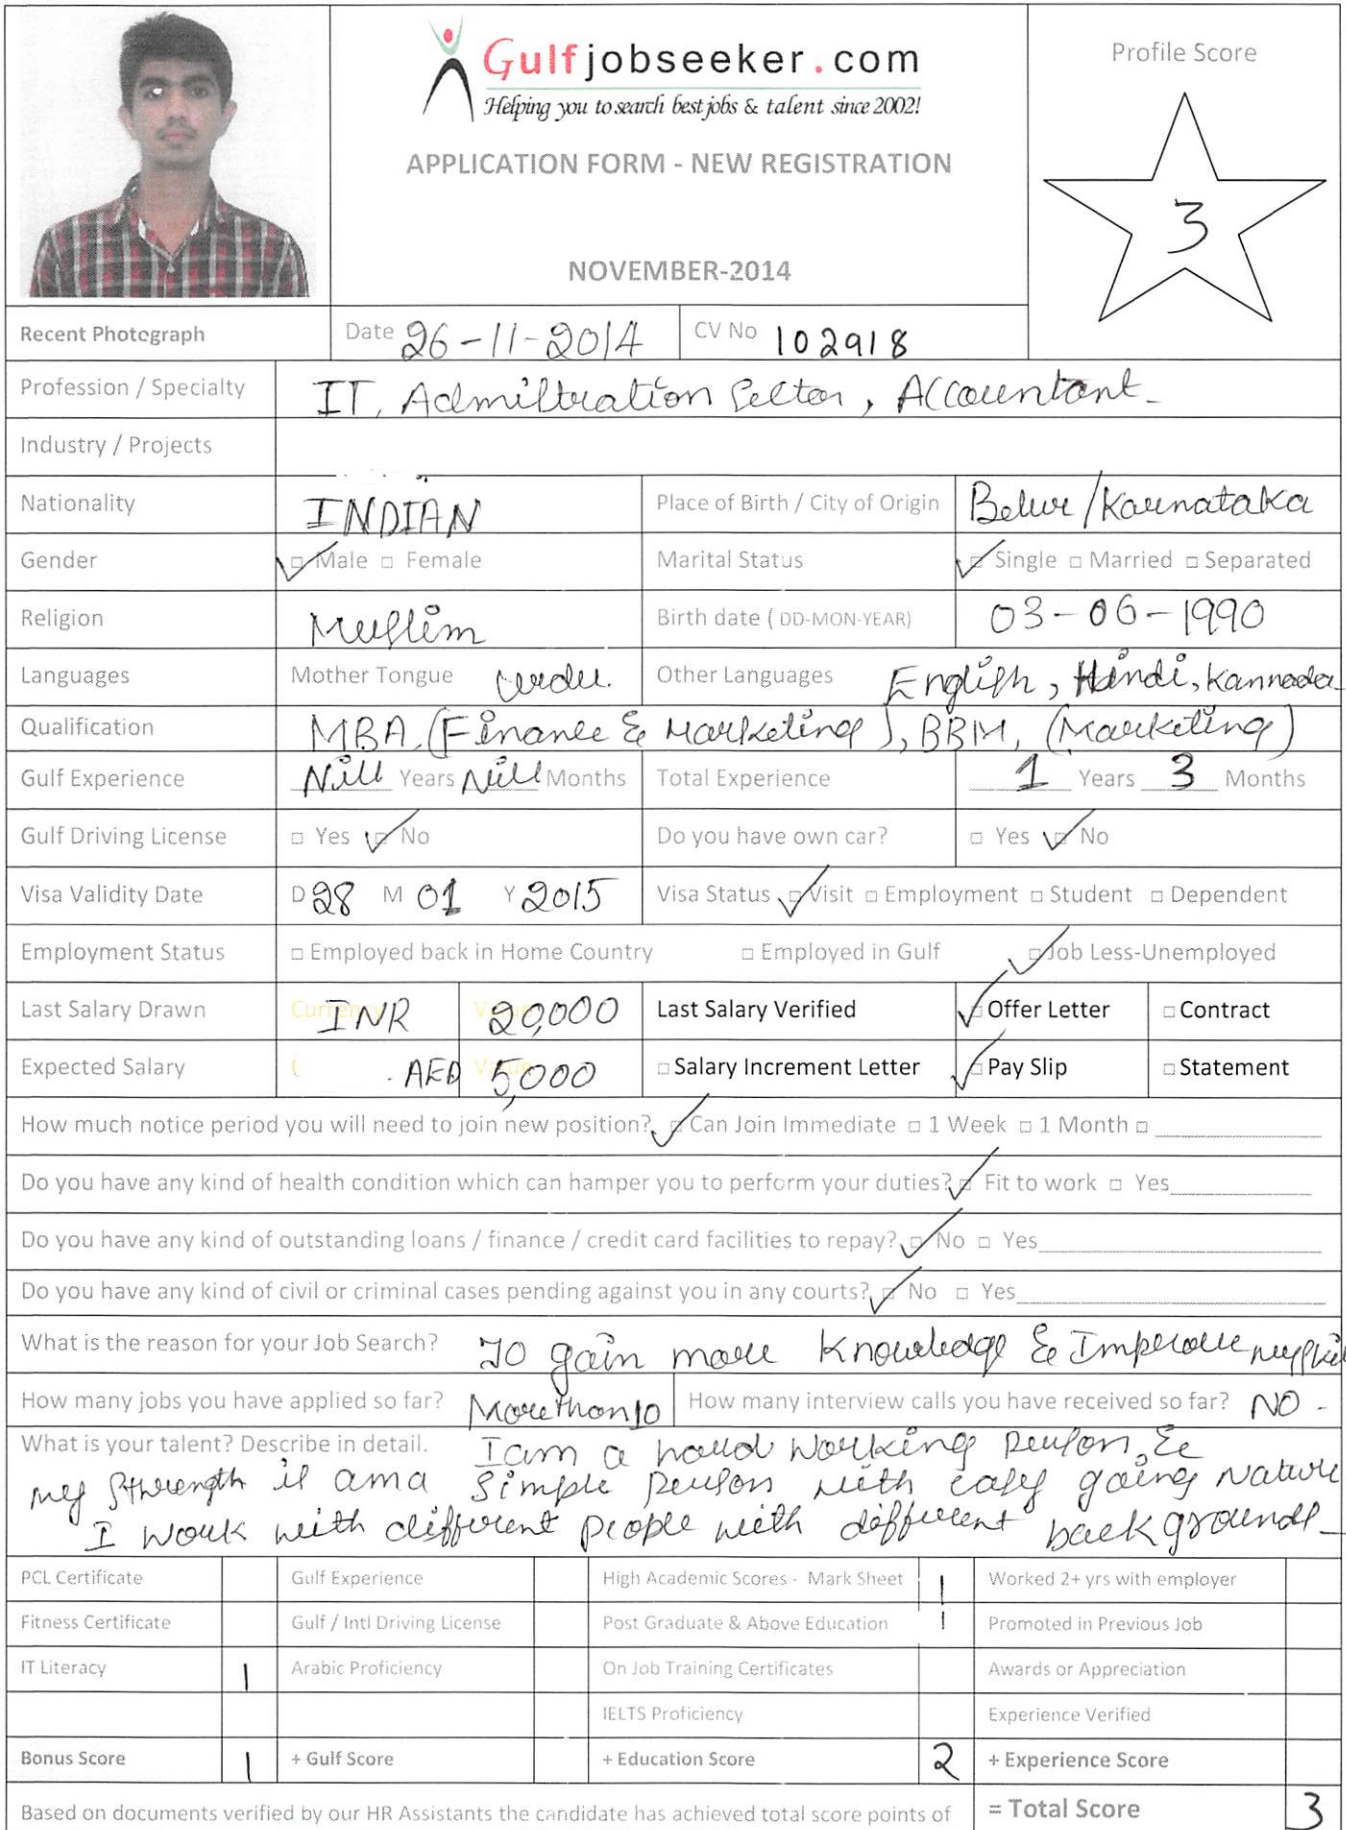 Gulfjobseeker.com
Helping you to search best jobs & talent since 2002!
APPLICATION FORM - NEW REGISTRATION
NOVEMBER-2014
Profile Score
3
Recent Photograph
Date 26-11-2014 CV No 102918
Profession / Specialty IT, Admiltration Sector, Accountant
Industry / Projects
Nationality INDIAN Place of Birth / City of Origin Belur/Karnataka
Gender Male Female Marital Status Single Married Separated
Religion Muslim Birth date ( DD-MON-YEAR) 03-06-1990
Languages Mother Tongue urdu. Other Languages English, Hindi, Kannada
Qualification MBA, (Finance & Marketing), BBM, (Marketing)
Gulf Experience Nill Years Nill Months Total Experience 1 Years 3 Months
Gulf Driving License Yes No Do you have own car? Yes No
Visa Validity Date D 28 M 01 Y 2015 Visa Status Visit Employment Student Dependent
Employment Status Employed back in Home Country Employed in Gulf Job Less-Unemployed
Last Salary Drawn INR 20,000 Last Salary Verified Offer Letter Contract
Expected Salary AED 5,000 Salary Increment Letter Pay Slip Statement
How much notice period you will need to join new position? Can Join Immediate 1 Week 1 Month
Do you have any kind of health condition which can hamper you to perform your duties? Fit to work Yes
Do you have any kind of outstanding loans / finance / credit card facilities to repay? No Yes
Do you have any kind of civil or criminal cases pending against you in any courts? No Yes
What is the reason for your Job Search? To gain more knowledge & Improve my
How many jobs you have applied so far? More than 10 How many interview calls you have received so far? NO -
What is your talent? Describe in detail. I am a hard working person, &
my strength is ama simple person with easy going nature
I work with different people with different backgrounds
PCL Certificate Gulf Experience High Academic Scores - Mark Sheet 1 Worked 2+ yrs with employer
Fitness Certificate Gulf / Intl Driving License Post Graduate & Above Education 1 Promoted in Previous Job
IT Literacy 1 Arabic Proficiency On Job Training Certificates Awards or Appreciation
IELTS Proficiency Experience Verified
Bonus Score 1 + Gulf Score + Education Score 2 + Experience Score
Based on documents verified by our HR Assistants the candidate has achieved total score points of = Total Score 3